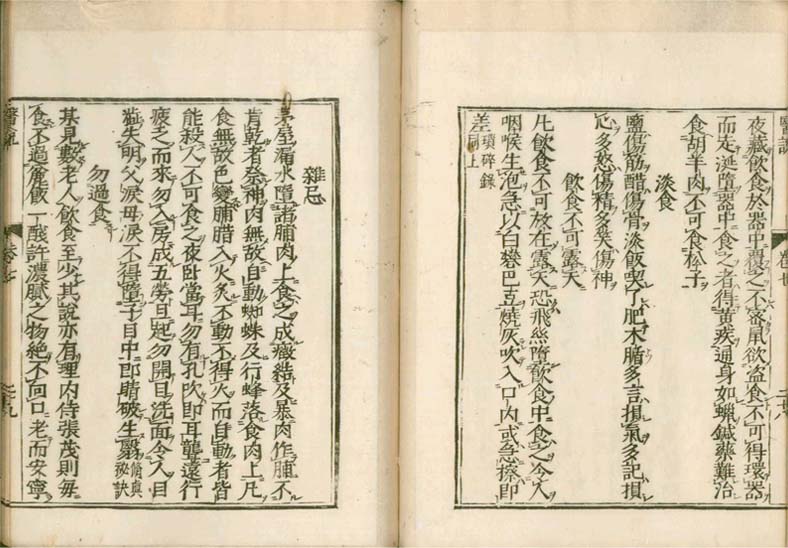 夜藏飲食於器中覆之不密鼠欲盜食不可得環器
而走涎墮器中食之者得黃疾通身如蠟鍼藥難治
食胡羊肉不可食松子
淡食
鹽傷筋醋傷骨淡飯喫了肥木腯多言損氣多記損
心多怒傷精多笑傷神
飲食不可露天
凡飲食不可放在露天恐飛絲墮飲食中食之令人
咽喉生泡急以白礬巴豆燒灰吹入口內或急擦即
差瑣碎錄同上
雜忌
茅屋漏水墮諸脯肉上食之成癥結及暴肉作脯不
肯乾者祭神肉無故自動蜘蛛及行蜂落食肉上凡
食無故色變脯腊入火炙不動不得火而自動者皆
能殺人不可食之夜臥當耳勿有孔吹即耳聾遠行
疲乏而來勿入房成五勞旦起勿開目洗面令人目
澁失明父淚母淚不得墮子目中即睛破生翳簡與秘訣
勿過食
某見數老人飲食至少其說亦有理內侍張茂則每
食不過麄飯一醆許濃膩之物絕不向口老而安寧